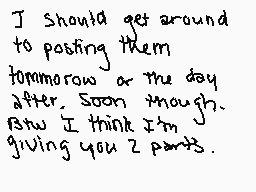 I should get around
to posting them
tommorow or the day
after. Soon though.
Btw I think I'm
giving you 2 parts.